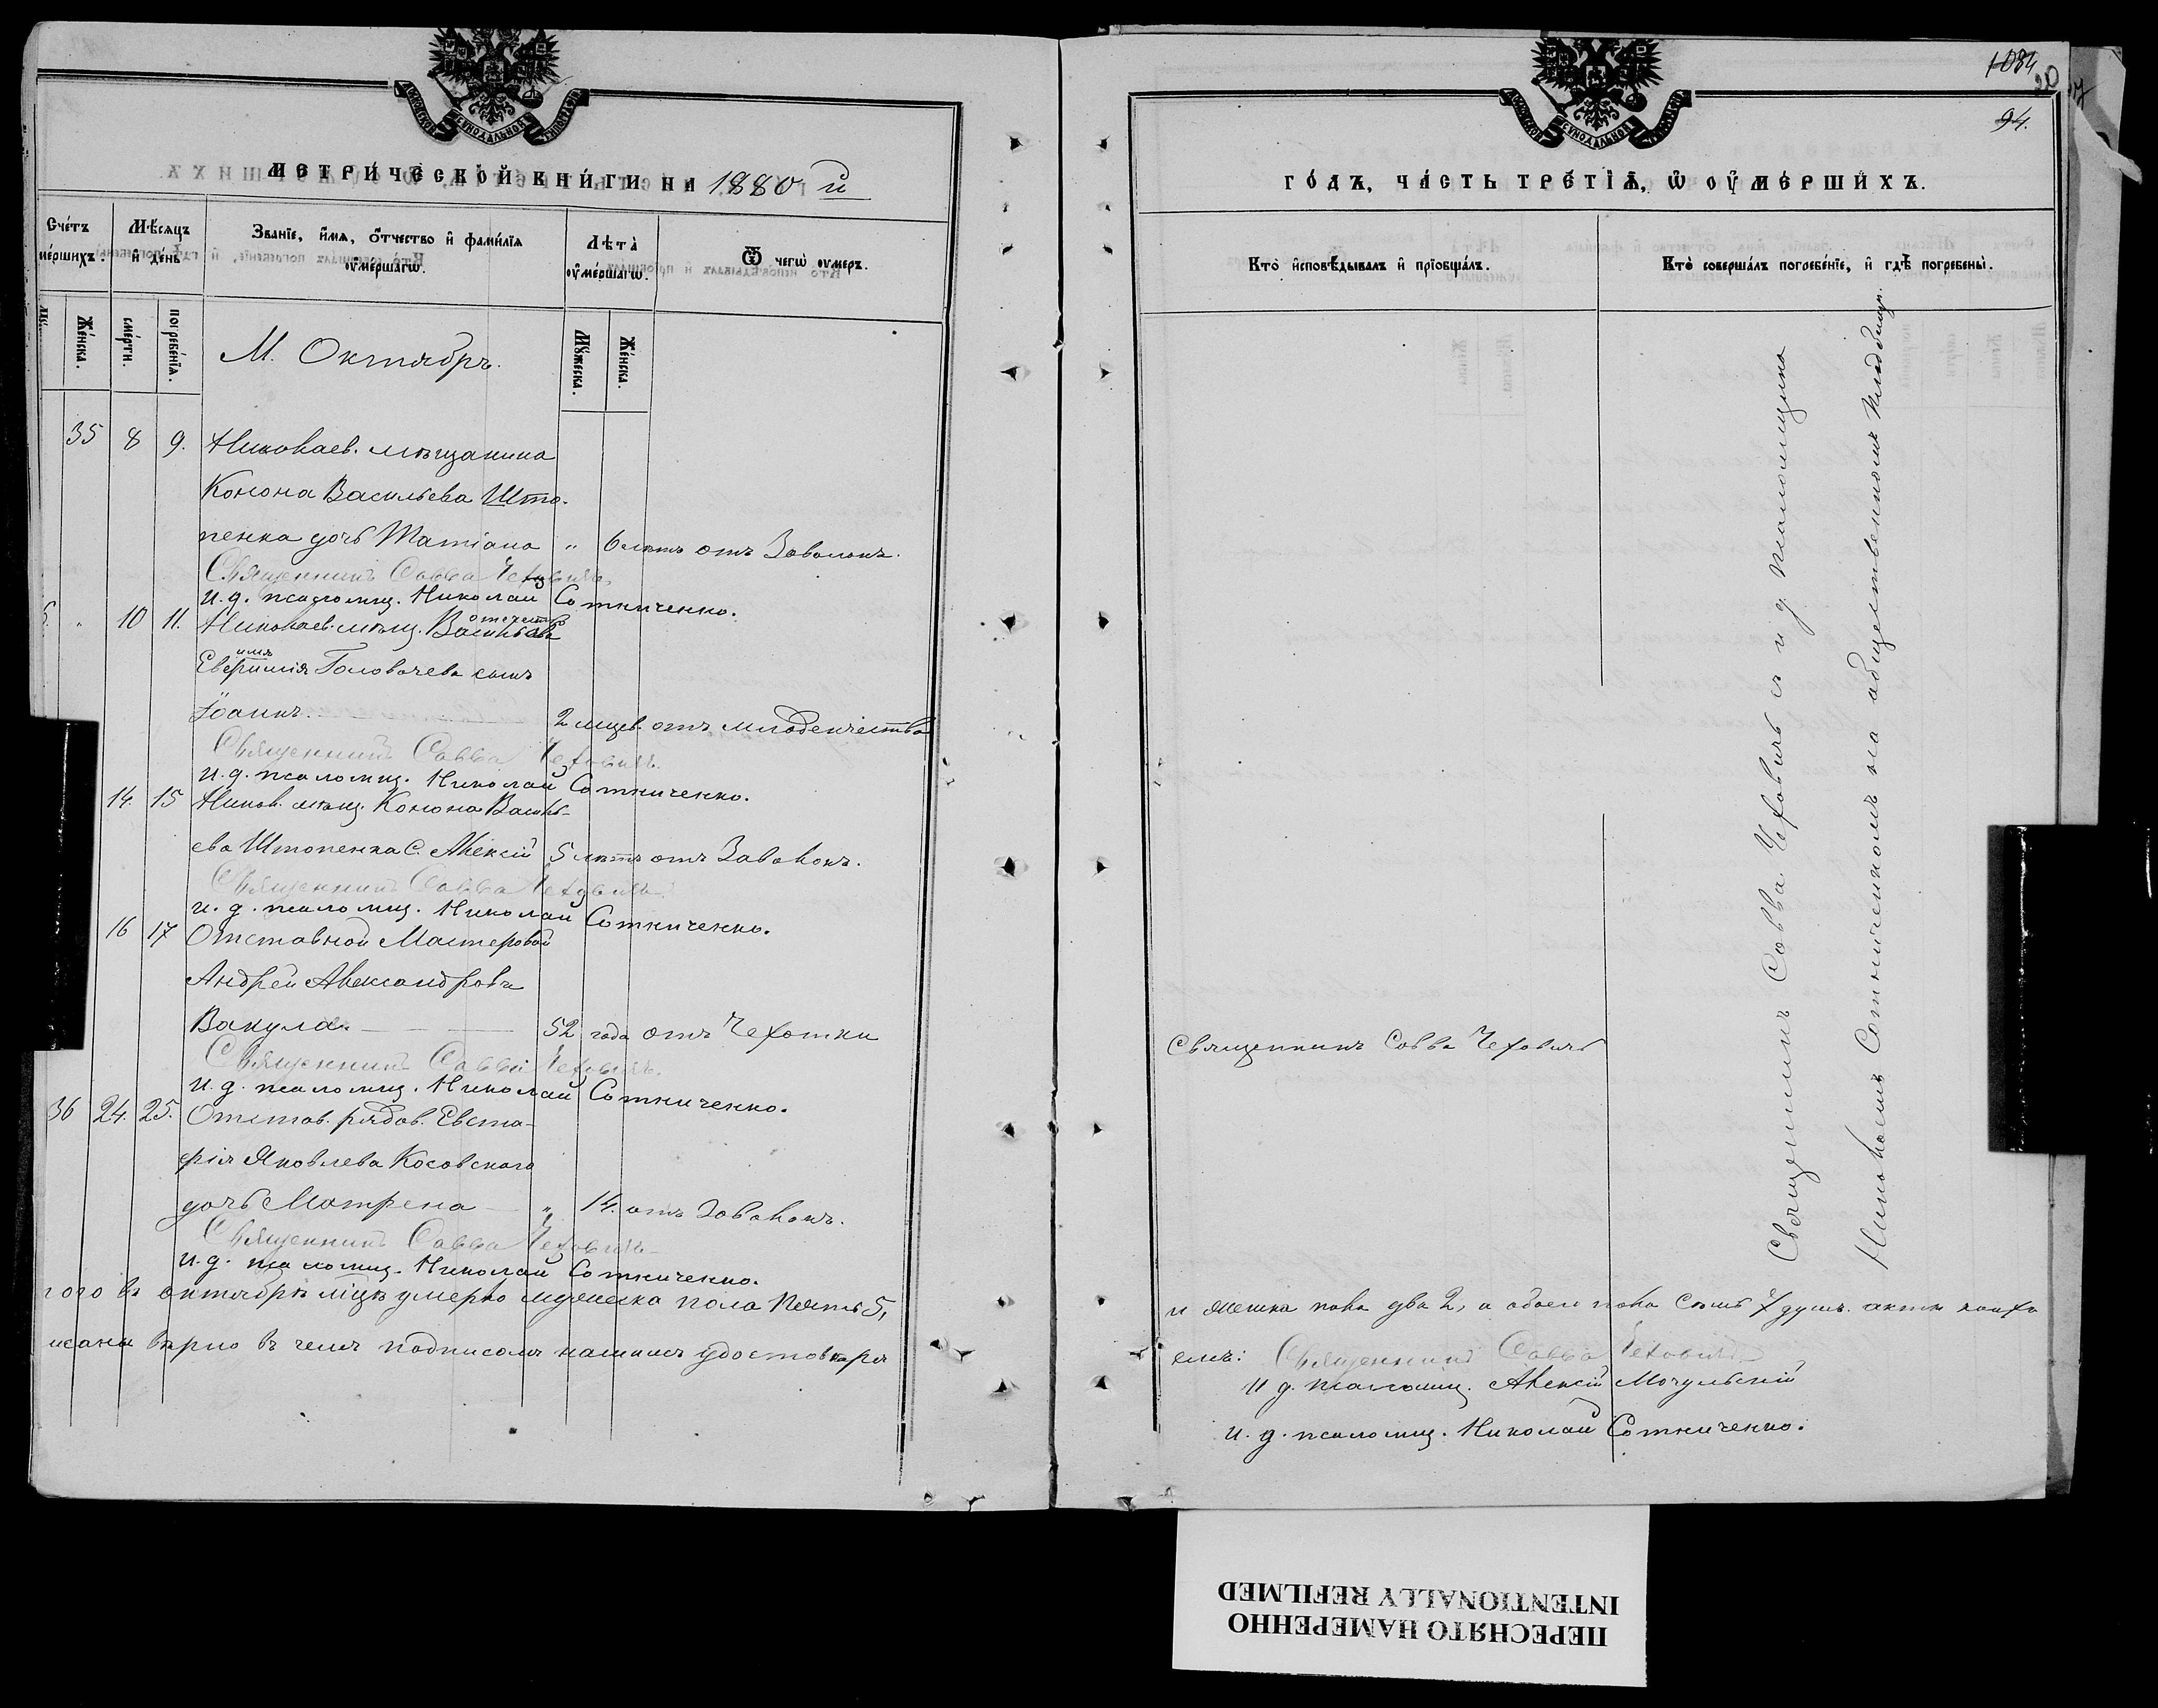 МЕТРИЧЕСКОЙ КНИГИ НА 1880 й
Счетъ мершихъ.
Мѣсяцъ и день
Званіе, имя, отчество и фамилія умершагѡ.
Лѣта умершагѡ.
Ѿ чегѡ умеръ.
Женска.
смерти.
погребенія.
Мужеска.
Женска.
М. Октябрь.
35 8 9. Николаев. мѣщанина
Конона Васильева Што-
пенка дочь Татіана " 6 лѣтъ отъ Заволокъ.
Священникъ Савва Чеховичъ
И. д. псаломщ. Николай Сотниченко.
" 10 11. Николаев. мѣщ. Васильева
отечество
имя
Евфимія Головачева сынъ
Іоаннъ. 2 мцев. отъ младенчества
Священникъ Савва Чеховичъ
И. д. псаломщ. Николай Сотниченко.
14. 15 Никол. мѣщ. Конона Василь-
ева Штопенка с. Алексій 5 лѣтъ отъ Заволокъ.
Священникъ Савва Чеховичъ
И. д. псаломщ. Николай Сотниченко.
16 17 Отставной Мастеровой
Андрей Александровъ
Вакула. 52 года отъ Чехотки
Священникъ Савва Чеховичъ
И. д. псаломщ. Николай Сотниченко.
36 24. 25. Отстав. рядов. Евста-
фія Яковлева Косовского
дочь Матрена " 14. отъ Заволокъ.
Священникъ Савва Чеховичъ
И. д. псаломщ. Николай Сотниченко.
того въ октябрѣ мцѣ умерло мужеска пола пять 5,
исаны вѣрно въ чемъ подписомъ нашимъ удостовѣря
1084
20
94.
ГОДЪ, ЧАСТЬ ТРЕТІЯ, Ѡ УМЕРШИХЪ.
Кто исповѣдывалъ и пріобщалъ.
Кто совершалъ погребеніе, и гдѣ погребены.
Священникъ Савва Чеховичъ
Священникъ Савва Чеховичъ съ и д псаломщика
Николаемъ Сотниченкомъ на общественномъ кладбищѣ.
и женска пола два 2, а обоего пола семь 7 душъ. акты
емъ: Священникъ Савва Чеховичъ
И д. псаломщ. Алексій Мочульскій
И. д. псаломщ. Николай Сотниченко.
ПЕРЕСНЯТО НАМЕРЕННО
INTENTIONALLY REFILMED